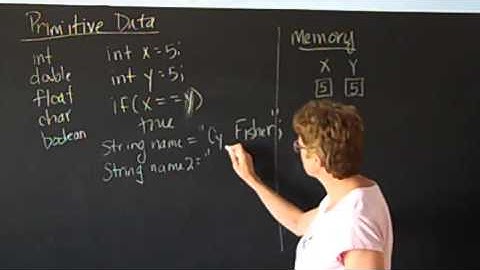 Primitive Data
int
double
float
char
boolean
int x=5;
int y=5;
if(x==y)
true
String name="Cy Fisher";
String name2="
Memory
X Y
5 5